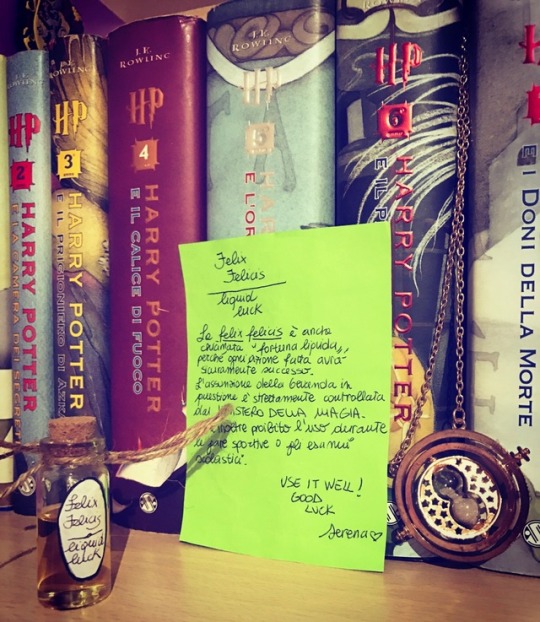 J.K.
ROWLING
HP
2
HARRY POTTER
E LA CAMERA DEI SEGRETI
J.K.
ROWLING
HP
3
HARRY POTTER
E IL PRIGIONIERO DI AZKA
J.K.
ROWLING
HP
4
HARRY POTTER
E IL CALICE DI FUOCO
J.K.
ROWLING
HP
5
E L'OR
J.K.
ROWLING
HP
6
HARRY POTTER
E IL P
E I DONI DELLA MORTE
Felix
Felicis
liquid
luck
La felix felicis è anche
chiamata "fortuna liquida",
perché ogni azione fatta avrà
sicuramente successo.
L'assunzione della bevanda in
questione è strettamente controllata
dal MINISTERO DELLA MAGIA.
È inoltre proibito l'uso durante
le gare sportive o gli esami
scolastici.
USE IT WELL!
GOOD
LUCK
Serena♡
Felix
Felicis
liquid
luck